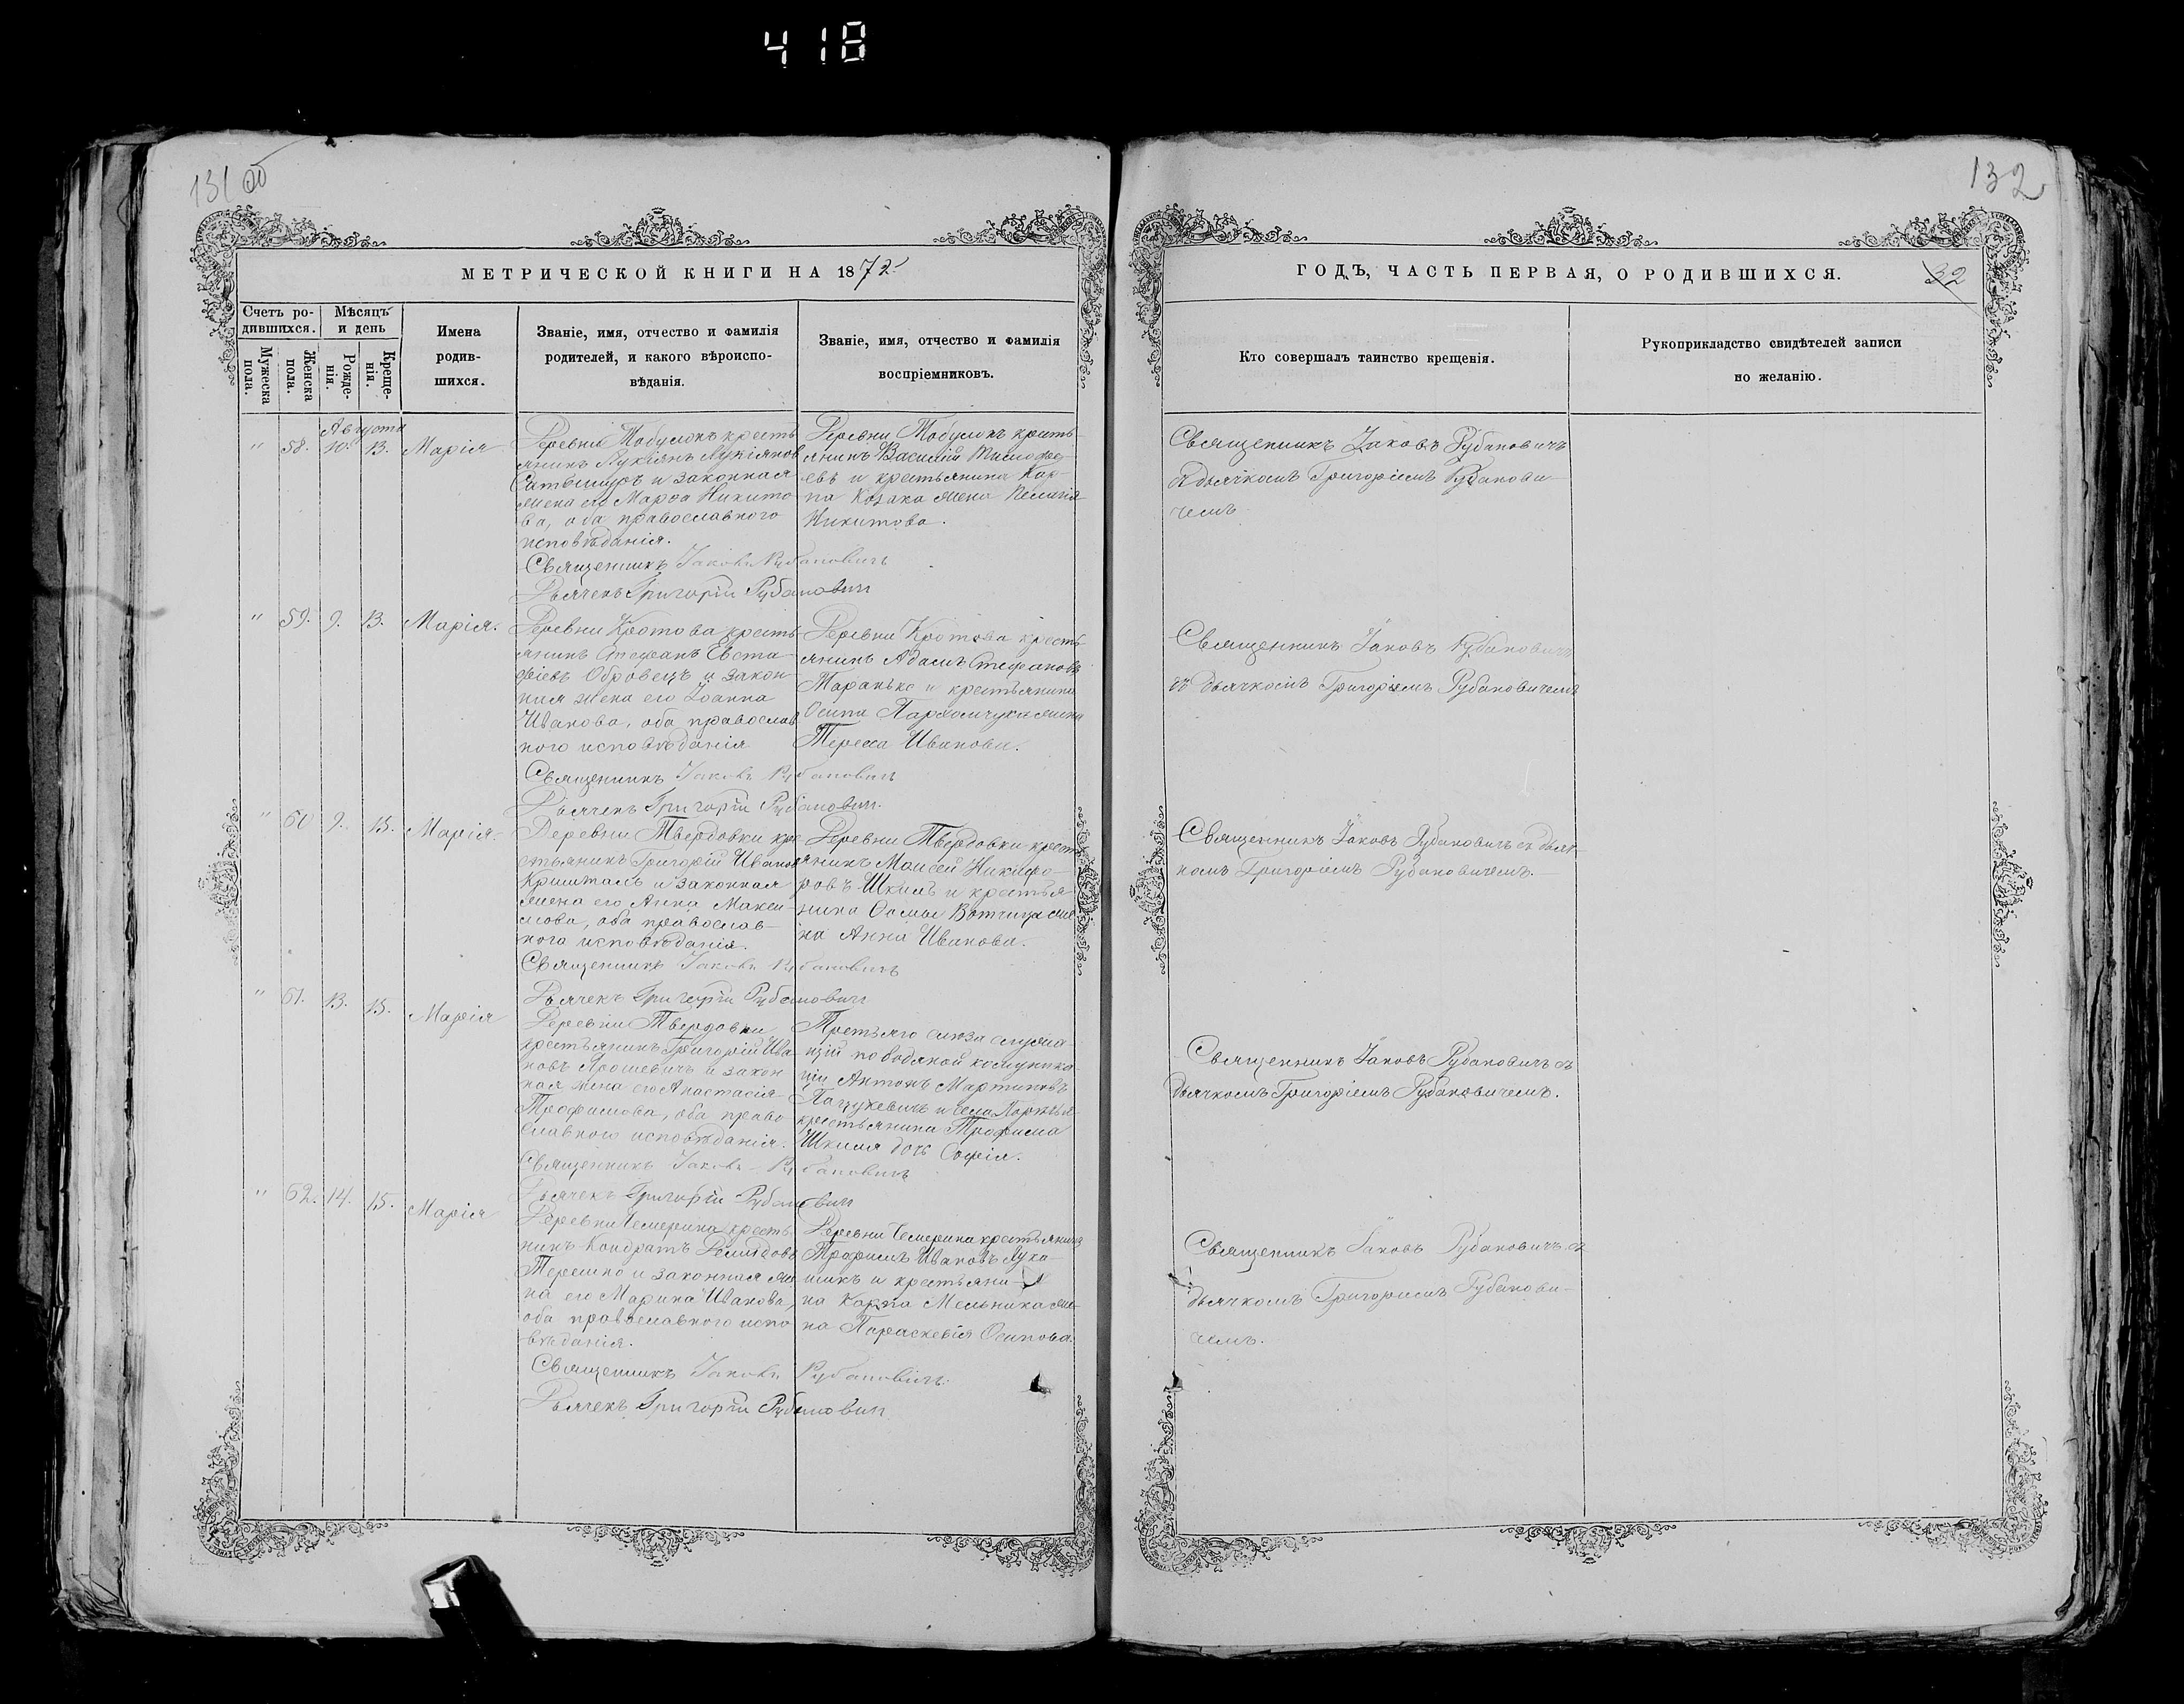 418
131 об
132
МЕТРИЧЕСКОЙ КНИГИ НА 1872
ГОДЪ, ЧАСТЬ ПЕРВАЯ, О РОДИВШИХСЯ.
32
Счетъ ро-
дившихся.
Мѣсяцъ
и день
Мужеска
пола.
Женска
пола.
Рожде-
нія.
Креще-
нія.
Имена
родив-
шихся.
Званіе, имя, отчество и фамилія
родителей, и какого вѣроиспо-
вѣданія.
Званіе, имя, отчество и фамилія
воспріемниковъ.
Кто совершалъ таинство крещенія.
Рукоприкладство свидѣтелей записи
по желанію.
Августа
" 58. 10. 13. Марія
Деревни Мобулокъ кресть
янинъ Лукіянъ Лукіяновъ
и законная
жена его Марѳа Никито
ва, оба православного
исповѣданія.
Священникъ Іаковъ Рубановичъ
Дьячекъ Григорій Рубановичъ
Деревни Мобулокъ кресть-
янинъ Василій Тимофе-
евъ и крестьянина Кар-
па Козака жена Пелагія
Никитова.
Священникъ Іаковъ Рубановичъ
съ дьячкомъ Григоріемъ Рубанови-
чемъ
" 59. 9. 13. Марія.
Деревни Кротова кресть
янинъ Стефанъ Евста-
фіевъ Обровецъ и закон-
ная жена его Іоанна
Иванова, оба православ
ного исповѣданія
Священникъ Іаковъ Рубановичъ
Дьячекъ Григорій Рубановичъ.
Деревни Кротова кресть
янинъ Адамъ Стефановъ
Маранько и крестьянина
Осипа Пархомчука жена
Тересса Иванова.
Священникъ Іаковъ Рубановичъ
съ дьячкомъ Григоріемъ Рубановичемъ
" 60 9. 15. Марія
Деревни Твердовки кре
стьянинъ Григорій Ивановъ
Кришталь и законная
жена его Анна Макси-
мова, оба православ-
ного исповѣданія.
Священникъ Іаковъ Рубановичъ
Дьячекъ Григорій Рубановичъ
Деревни Твердовки кресть
янинъ Моисей Никифо-
ровъ Шкиль и крестья-
нина Ѳомы же
на Анна Иванова.
Священникъ Іаковъ Рубановичъ съ дьяч-
комъ Григоріемъ Рубановичемъ.
" 61. 13. 15. Марія
Деревни Твердовки
крестьянинъ Григорій Ива-
новъ Ярошевичъ и закон
ная жена его Анастасія
Трофимова, оба право
славного исповѣданія.
Священникъ Іаковъ Рубановичъ
Дьячекъ Григорій Рубановичъ
Третьяго служа-
щій по водяной комуника-
ціи Антонъ Мартиновъ
Пацукевичъ и села
крестьянина Трофима
Шкиля дочь Софія.
Священникъ Іаковъ Рубановичъ съ
дьячкомъ Григоріемъ Рубановичемъ.
" 62. 14. 15. Марія
Деревни Чемерина кресть
нинъ Кондратъ Демидовъ
Терешко и законная же
на его Марина Иванова,
оба православного испо
вѣданія.
Священникъ Іаковъ Рубановичъ
Дьячекъ Григорій Рубановичъ
Деревни Чемерина крестьянинъ
Трофимъ Ивановъ
и крестьяни-
на Карпа Мельника же-
на Параскевія Осипова.
Священникъ Іаковъ Рубановичъ съ
дьячкомъ Григоріемъ Рубанови-
чемъ.